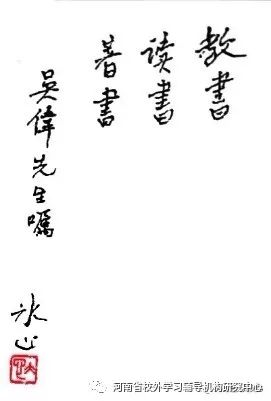 教書
读書
著書
吴偉先生嘱
冰心
河南省校外学习辅导机构研究中心